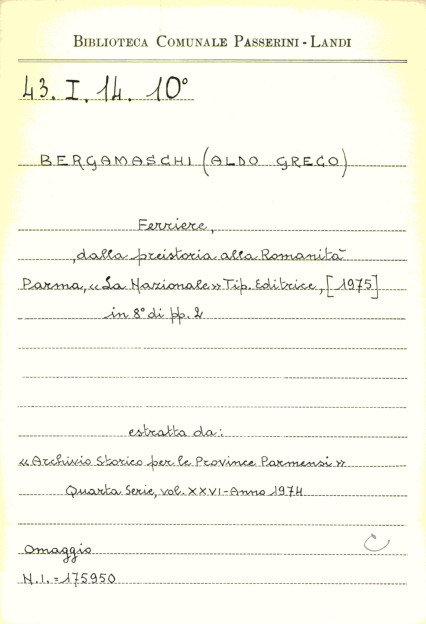 BIBLIOTECA COMUNALE PASSERINI - LANDI
43. I. 14. 10°
BERGAMASCHI (ALDO GRECO)
Ferriere,
, dalla preistoria alla Romanità
Parma, «La Nazionale» Tip. Editrice, [1975]
in 8° di pp. 2
estratta da:
«Archivio Storico per le Province Parmensi»
Quarta Serie, vol. XXVI - Anno 1974
Omaggio
N.I. = 175950